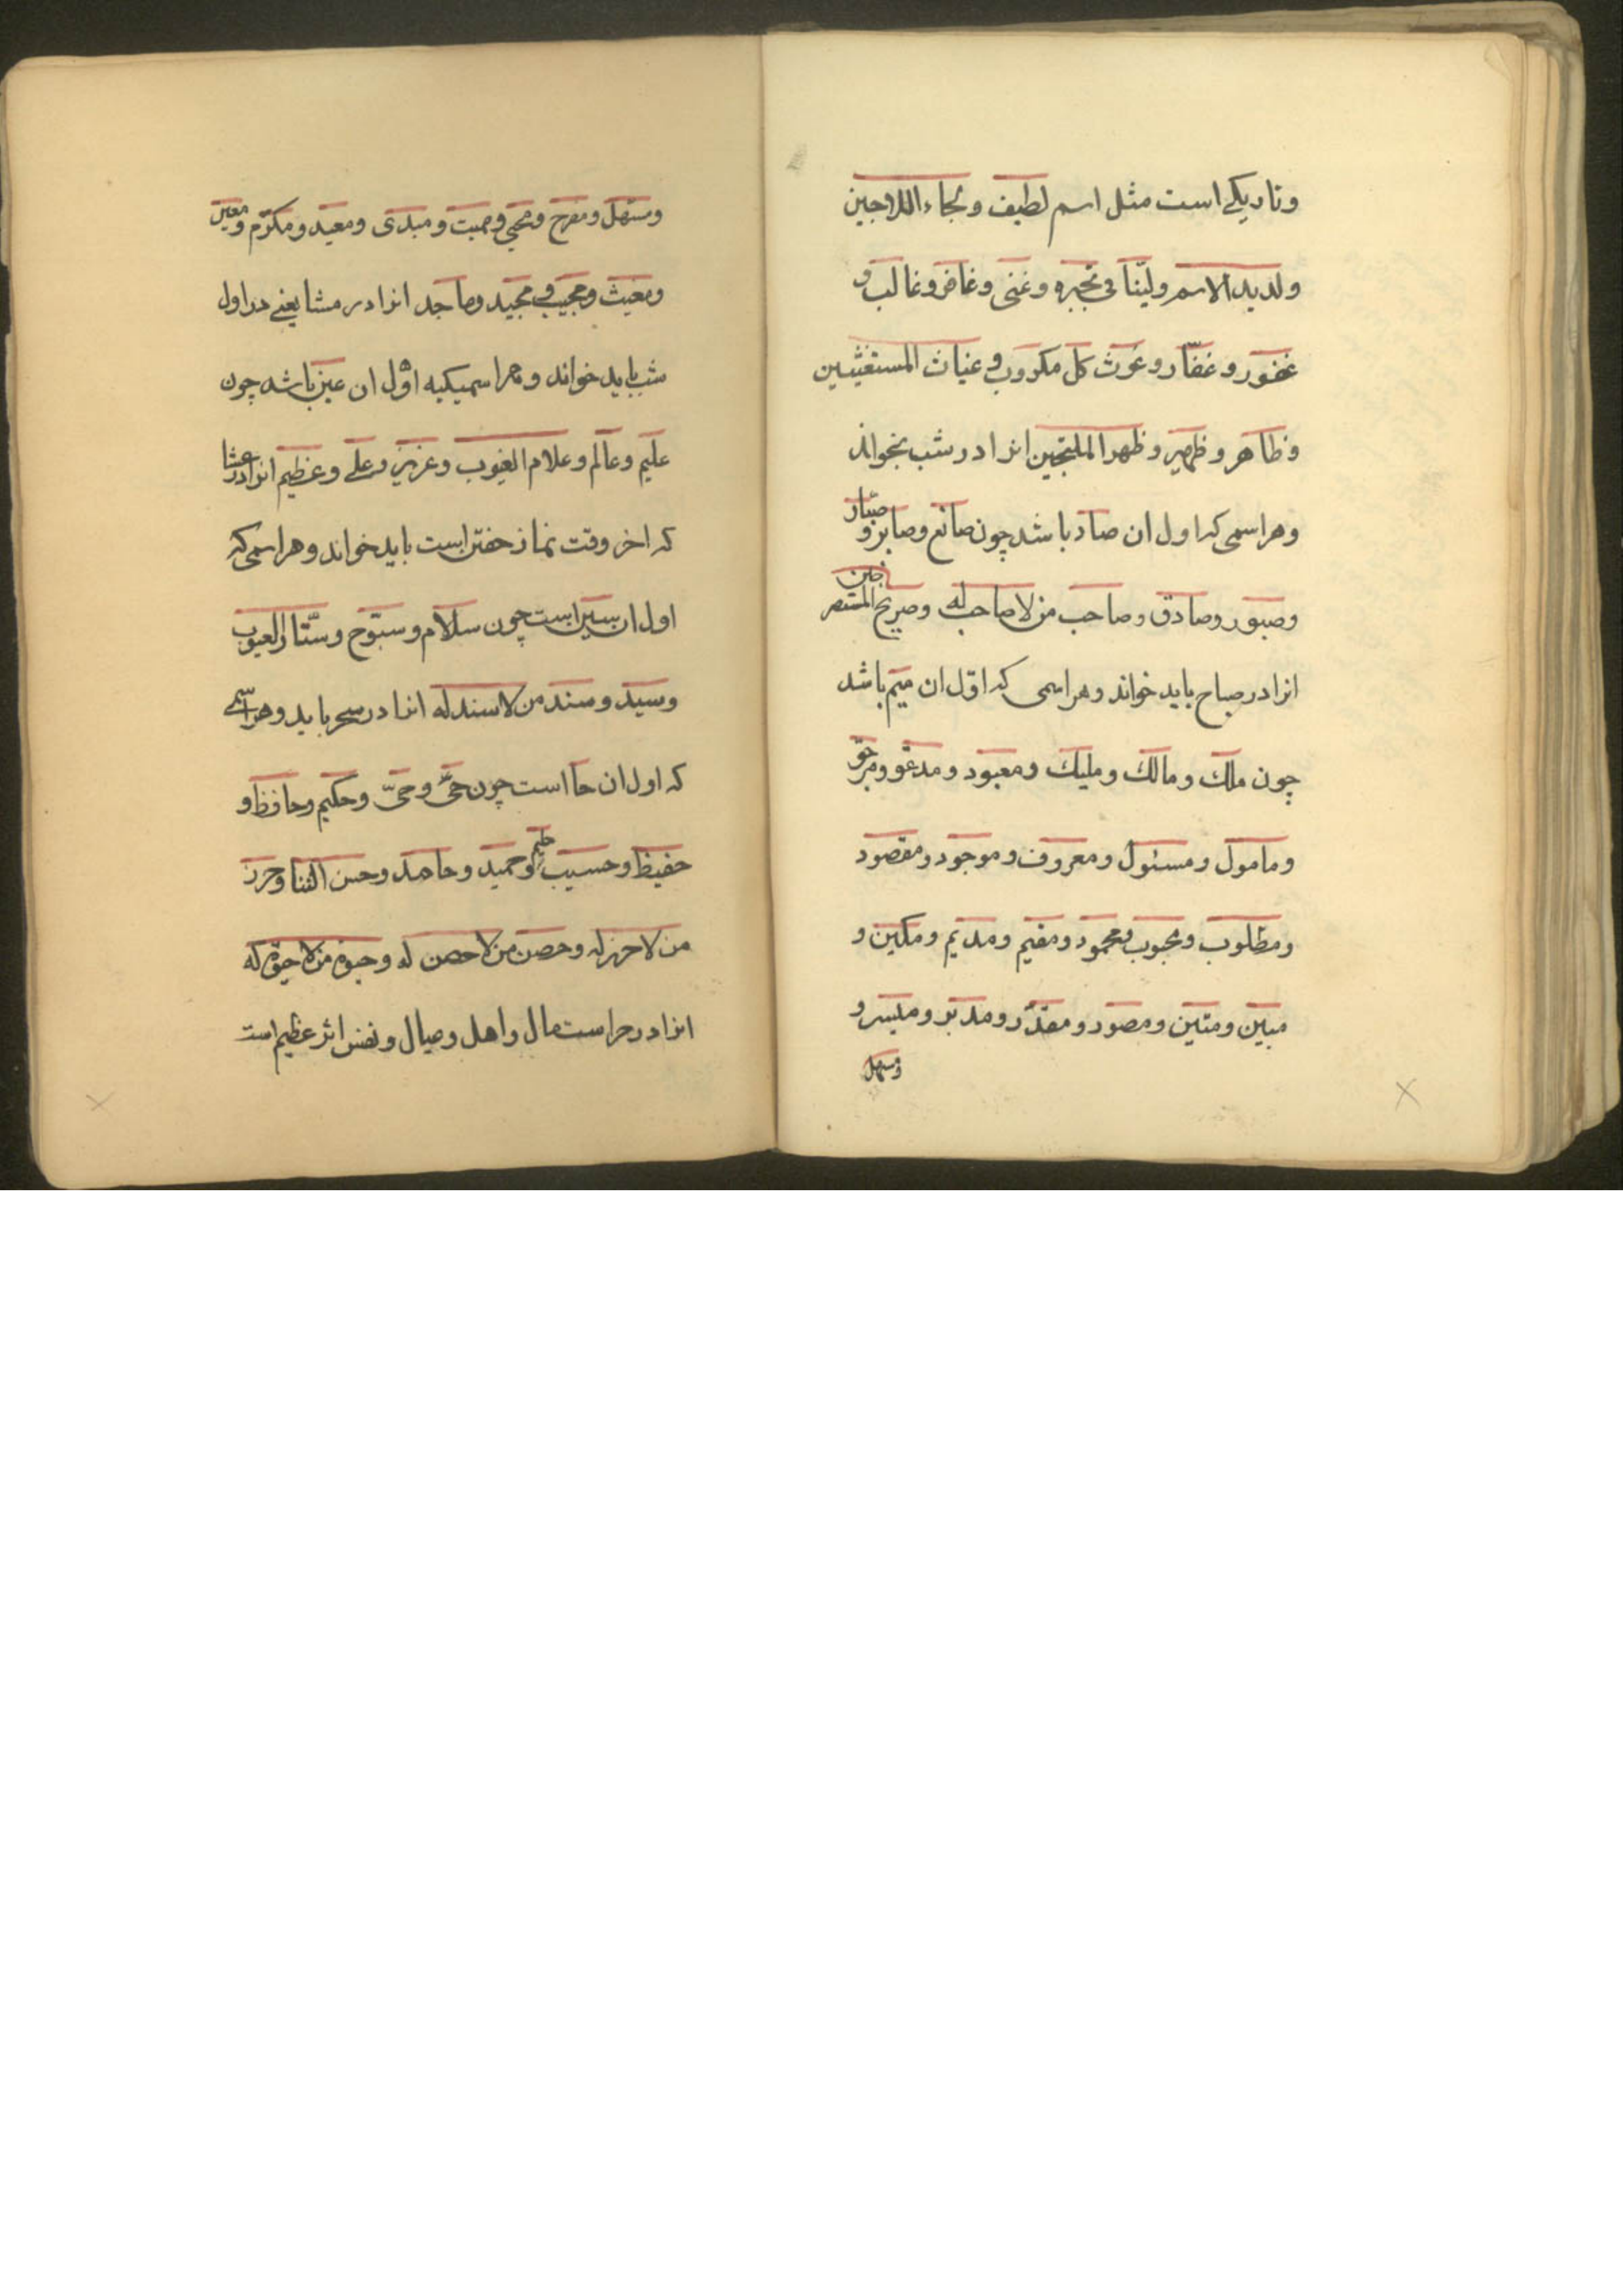 وتاریکی است مثل اسم لطیف و لجاء اللاجین
ولدید الاسم ولینا فی تجبره و غنی و غافر و غالب و
غفور و غفّار و غوث کل مکروب و غیاث المستغیثین
و ظاهر و ظهیر و ظهر الملتجین انرا در شب بخواند
وهر اسمی که اول ان صاد باشد چون صانع و صابر و صبّار
و صبور و صادق و صاحب من لا صاحب له و صریخ المستصرخین
انرا در صباح باید خواند وهر اسمی که اوّل ان میم باشد
چون ملک و مالک و ملیک و معبود و مدعوّ و مرجوّ
و مامول و مسئول و معروف و موجود و مقصود
و مطلوب و محبوب و محمود و مقیم و مدیم و مکین و
مبین و متین و مصور و مقدّر و مدبّر و میسر و
و مسهل
و مسهل و مفرح و محیی و ممیت و مبدی و معید و مکرّم و معین
و مغیث و مجیب و مجید و ماجد انرا در مشا یعنی در اول
شب باید خواند و هر اسمیکیه اوّل ان عین باشد چون
علیم و عالم و علام الغیوب و عزیز و علی و عظیم انرا در عشا
که اخر وقت نماز خفتن است باید خواند و هر اسمی که
اول ان سین است چون سلام و سبّوح و ستّار العیوب
و سید و سند من لا سند له انرا در سحر باید و هر اسمی
که اول ان حا است چون حیّ و حیّ و حکیم و حافظ و
حفیظ و حسیب و حلیم و حمید و حامد و حسن الثنا و حرز
من لا حرز له و حصن من لا حصن له و حیوة من لا حیوة له
انرا در حراست مال و اهل و عیال و نفس اثر عظیم است